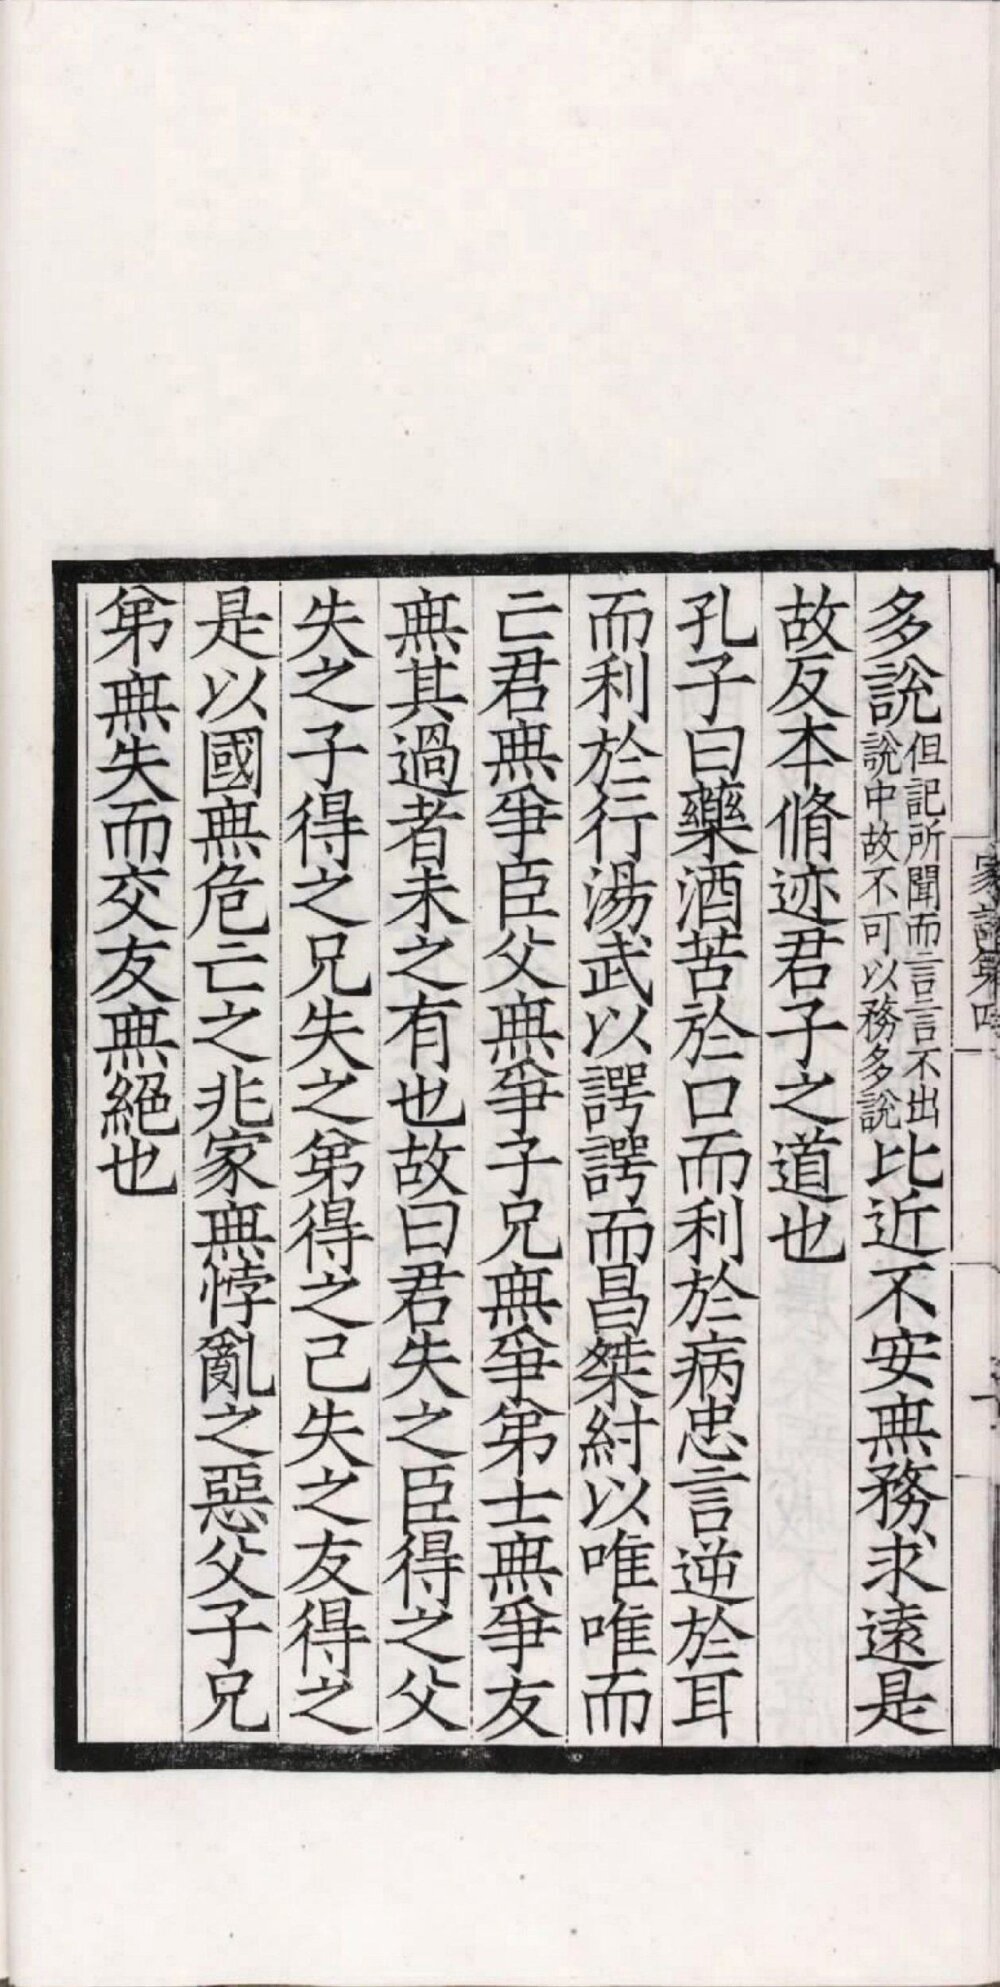 多說但記所聞而言言不出說中故不可以務多說比近不安無務求遠是
故反本脩迹君子之道也
孔子曰藥酒苦於口而利於病忠言逆於耳
而利於行湯武以諤諤而昌桀紂以唯唯而
亡君無爭臣父無爭子兄無爭弟士無爭友
無其過者未之有也故曰君失之臣得之父
失之子得之兄失之弟得之己失之友得之
是以國無危亡之兆家無悖亂之惡父子兄
弟無失而交友無絕也